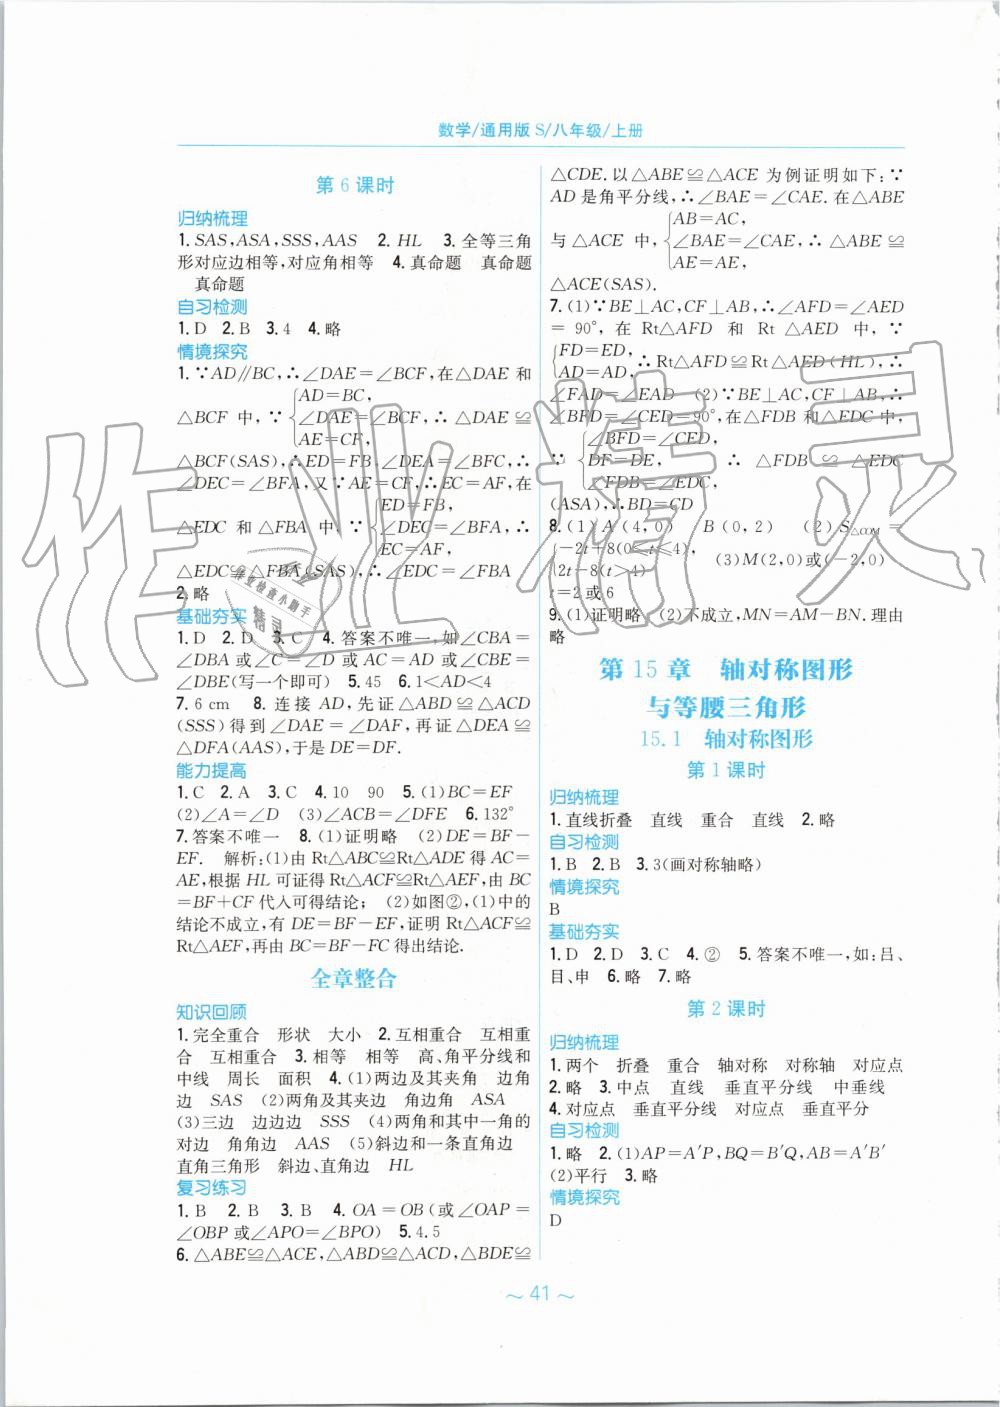 数学/通用版 S/八年级/上册
第 6 课时
归纳梳理
1. SAS,ASA,SSS,AAS 2. HL 3. 全等三角
形对应边相等,对应角相等 4. 真命题 真命题
真命题
自习检测
1. D 2. B 3. 4 4. 略
情境探究
1. ∵AD∥BC,∴∠DAE=∠BCF,在△DAE 和
AD=BC,
△BCF 中,∵ ∠DAE=∠BCF,∴△DAE≌
AE=CF,
△BCF(SAS),∴ED=FB,∠DEA=∠BFC,∴
∠DEC=∠BFA,又∵AE=CF,∴EC=AF,在
ED=FB,
△EDC 和△FBA 中,∵ ∠DEC=∠BFA,∴
EC=AF,
△EDC≌△FBA(SAS),∴∠EDC=∠FBA
2. 略
基础夯实
1. D 2. D 3. C 4. 答案不唯一,如∠CBA=
∠DBA 或∠C=∠D 或AC=AD 或∠CBE=
∠DBE(写一个即可) 5. 45 6. 1<AD<4
7. 6 cm 8. 连接 AD,先证△ABD≌△ACD
(SSS)得到∠DAE=∠DAF,再证△DEA≌
△DFA(AAS),于是 DE=DF.
能力提高
1. C 2. A 3. C 4. 10 90 5. (1)BC=EF
(2)∠A=∠D (3)∠ACB=∠DFE 6. 132°
7. 答案不唯一 8. (1)证明略 (2)DE=BF-
EF. 解析:(1)由 Rt△ABC≌Rt△ADE 得 AC=
AE,根据 HL 可证得 Rt△ACF≌Rt△AEF,由 BC
=BF+CF 代入可得结论; (2)如图②,(1)中的
结论不成立,有 DE=BF-EF,证明 Rt△ACF≌
Rt△AEF,再由 BC=BF-FC 得出结论.
全章整合
知识回顾
1. 完全重合 形状 大小 2. 互相重合 互相重
合 互相重合 3. 相等 相等 高、角平分线和
中线 周长 面积 4. (1)两边及其夹角 边角
边 SAS (2)两角及其夹边 角边角 ASA
(3)三边 边边边 SSS (4)两角和其中一角的
对边 角角边 AAS (5)斜边和一条直角边
直角三角形 斜边、直角边 HL
复习练习
1. B 2. B 3. B 4. OA=OB(或∠OAP=
∠OBP 或∠APO=∠BPO) 5. 4.5
6. △ABE≌△ACE,△ABD≌△ACD,△BDE≌
△CDE. 以△ABE≌△ACE 为例证明如下:∵
AD 是角平分线,∴∠BAE=∠CAE. 在△ABE
AB=AC,
与△ACE 中, ∠BAE=∠CAE,∴△ABE≌
AE=AE,
△ACE(SAS).
7. (1)∵BE⊥AC,CF⊥AB,∴∠AFD=∠AED
= 90°, 在 Rt△AFD 和 Rt △AED 中, ∵
FD=ED,
AD=AD, ∴Rt△AFD≌Rt△AED(HL),∴
∠FAD=∠EAD (2)∵BE⊥AC,CF⊥AB,∴
∠BFD=∠CED=90°,在△FDB 和△EDC 中,
∠BFD=∠CED,
∵ DF=DE, ∴ △FDB ≌ △EDC
∠FDB=∠EDC,
(ASA),∴BD=CD
8. (1)A(4,0) B(0,2) (2)S△COM=
-2t+8(0≤t≤4),
2t-8(t>4) (3)M(2,0)或(-2,0)
t=2 或 6
9. (1)证明略 (2)不成立,MN=AM-BN. 理由
略
第 15 章 轴对称图形
与等腰三角形
15.1 轴对称图形
第 1 课时
归纳梳理
1. 直线折叠 直线 重合 直线 2. 略
自习检测
1. B 2. B 3. 3(画对称轴略)
情境探究
B
基础夯实
1. D 2. D 3. C 4. ② 5. 答案不唯一,如:吕、
目、申 6. 略 7. 略
第 2 课时
归纳梳理
1. 两个 折叠 重合 轴对称 对称轴 对应点
2. 略 3. 中点 直线 垂直平分线 中垂线
4. 对应点 垂直平分线 垂直平分
自习检测
1. 略 2. (1)AP=A′P,BQ=B′Q,AB=A′B′
(2)平行 3. 略
情境探究
D
~ 41 ~
作业精灵
作业检查小助手
精灵